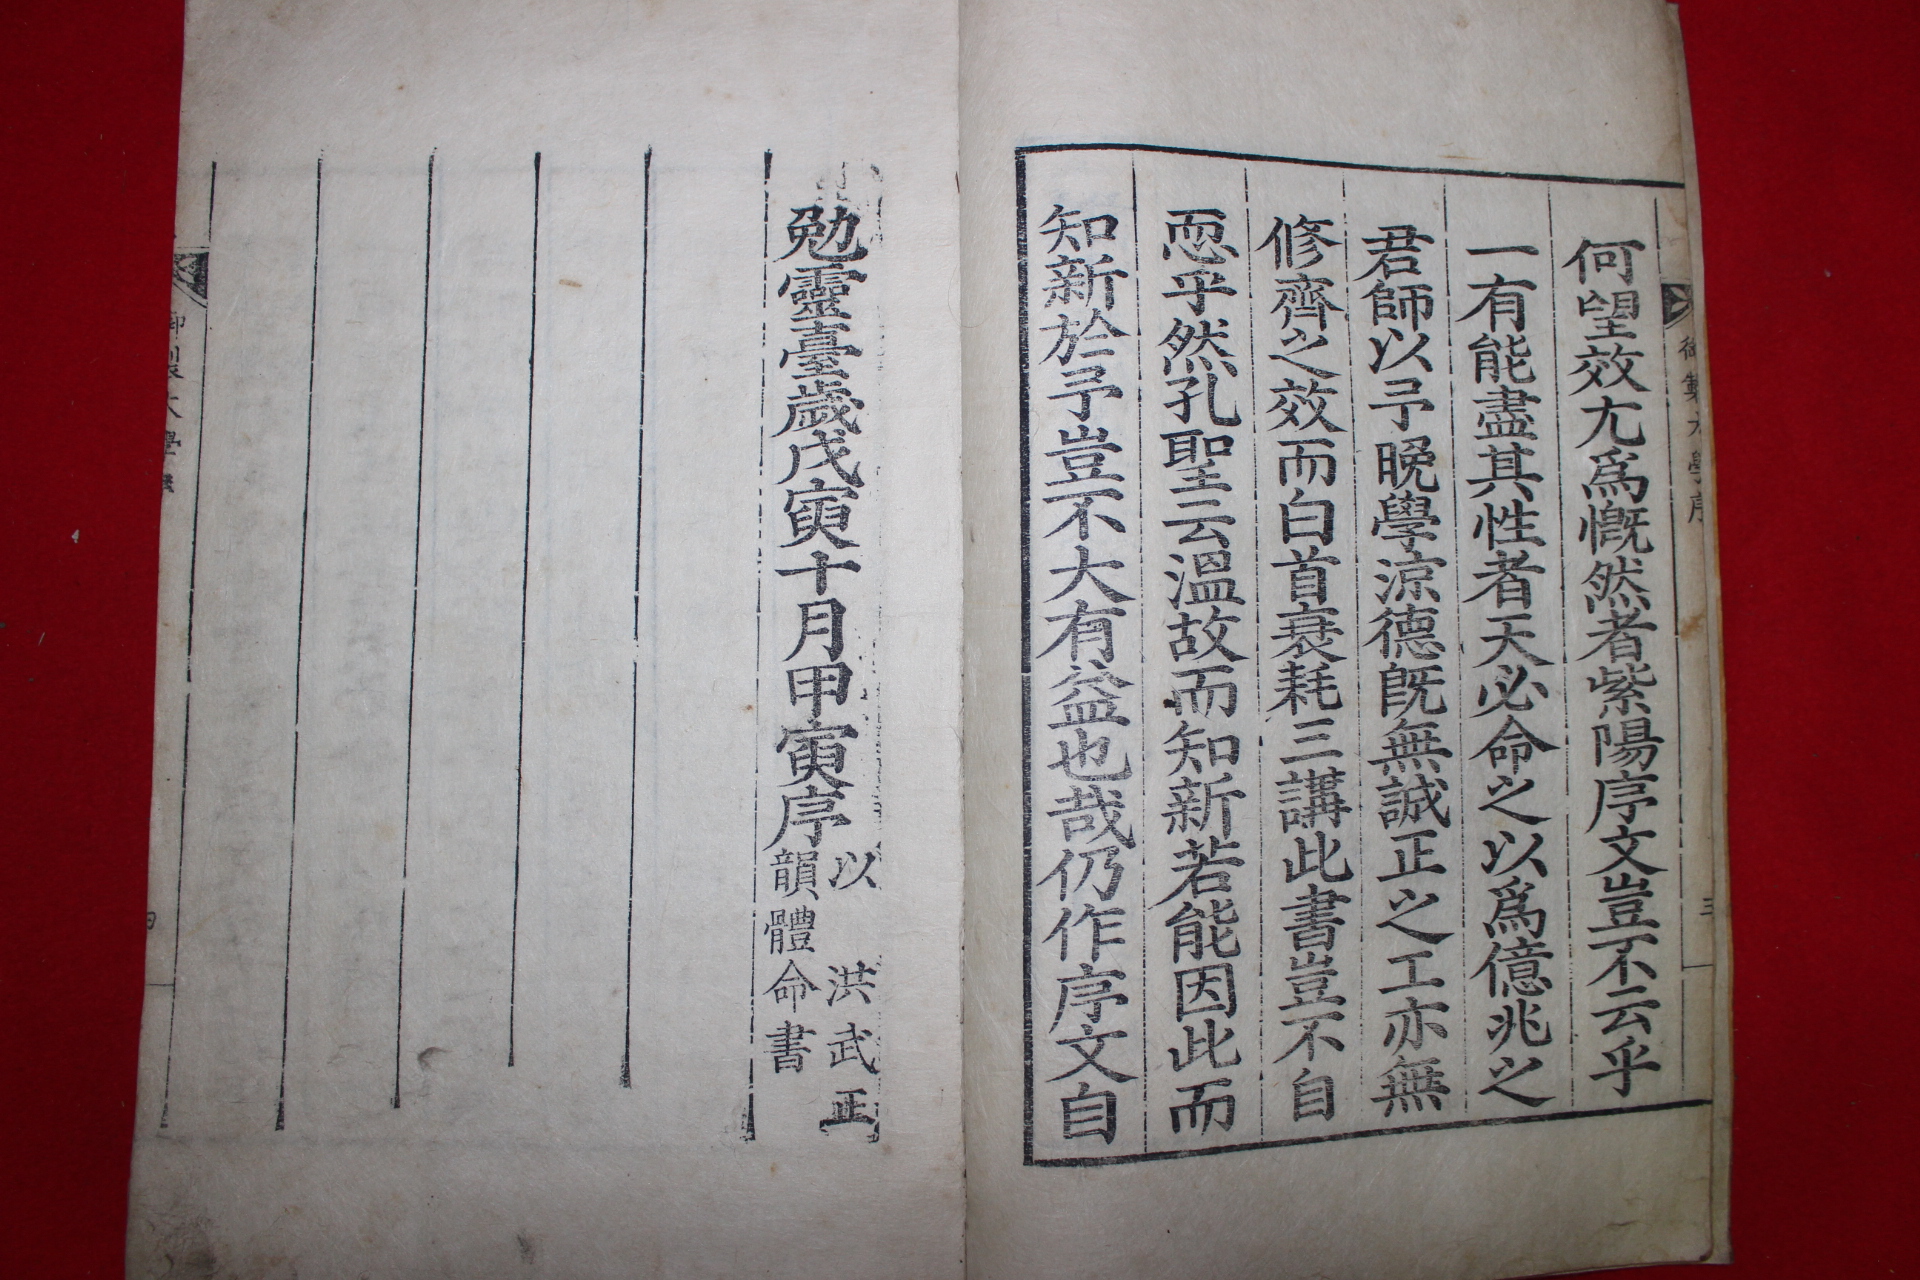 御製大學序
三
何望效尤爲慨然者紫陽序文豈不云乎
一有能盡其性者天必命之以爲億兆之
君師以予晩學涼德旣無誠正之工亦無
修齊之效而白首衰耗三講此書豈不自
恧乎然孔聖云溫故而知新若能因此而
知新於予豈不大有益也哉仍作序文自
勉靈臺歲戊寅十月甲寅序
以 洪武正
韻體命書
御製大學序
四